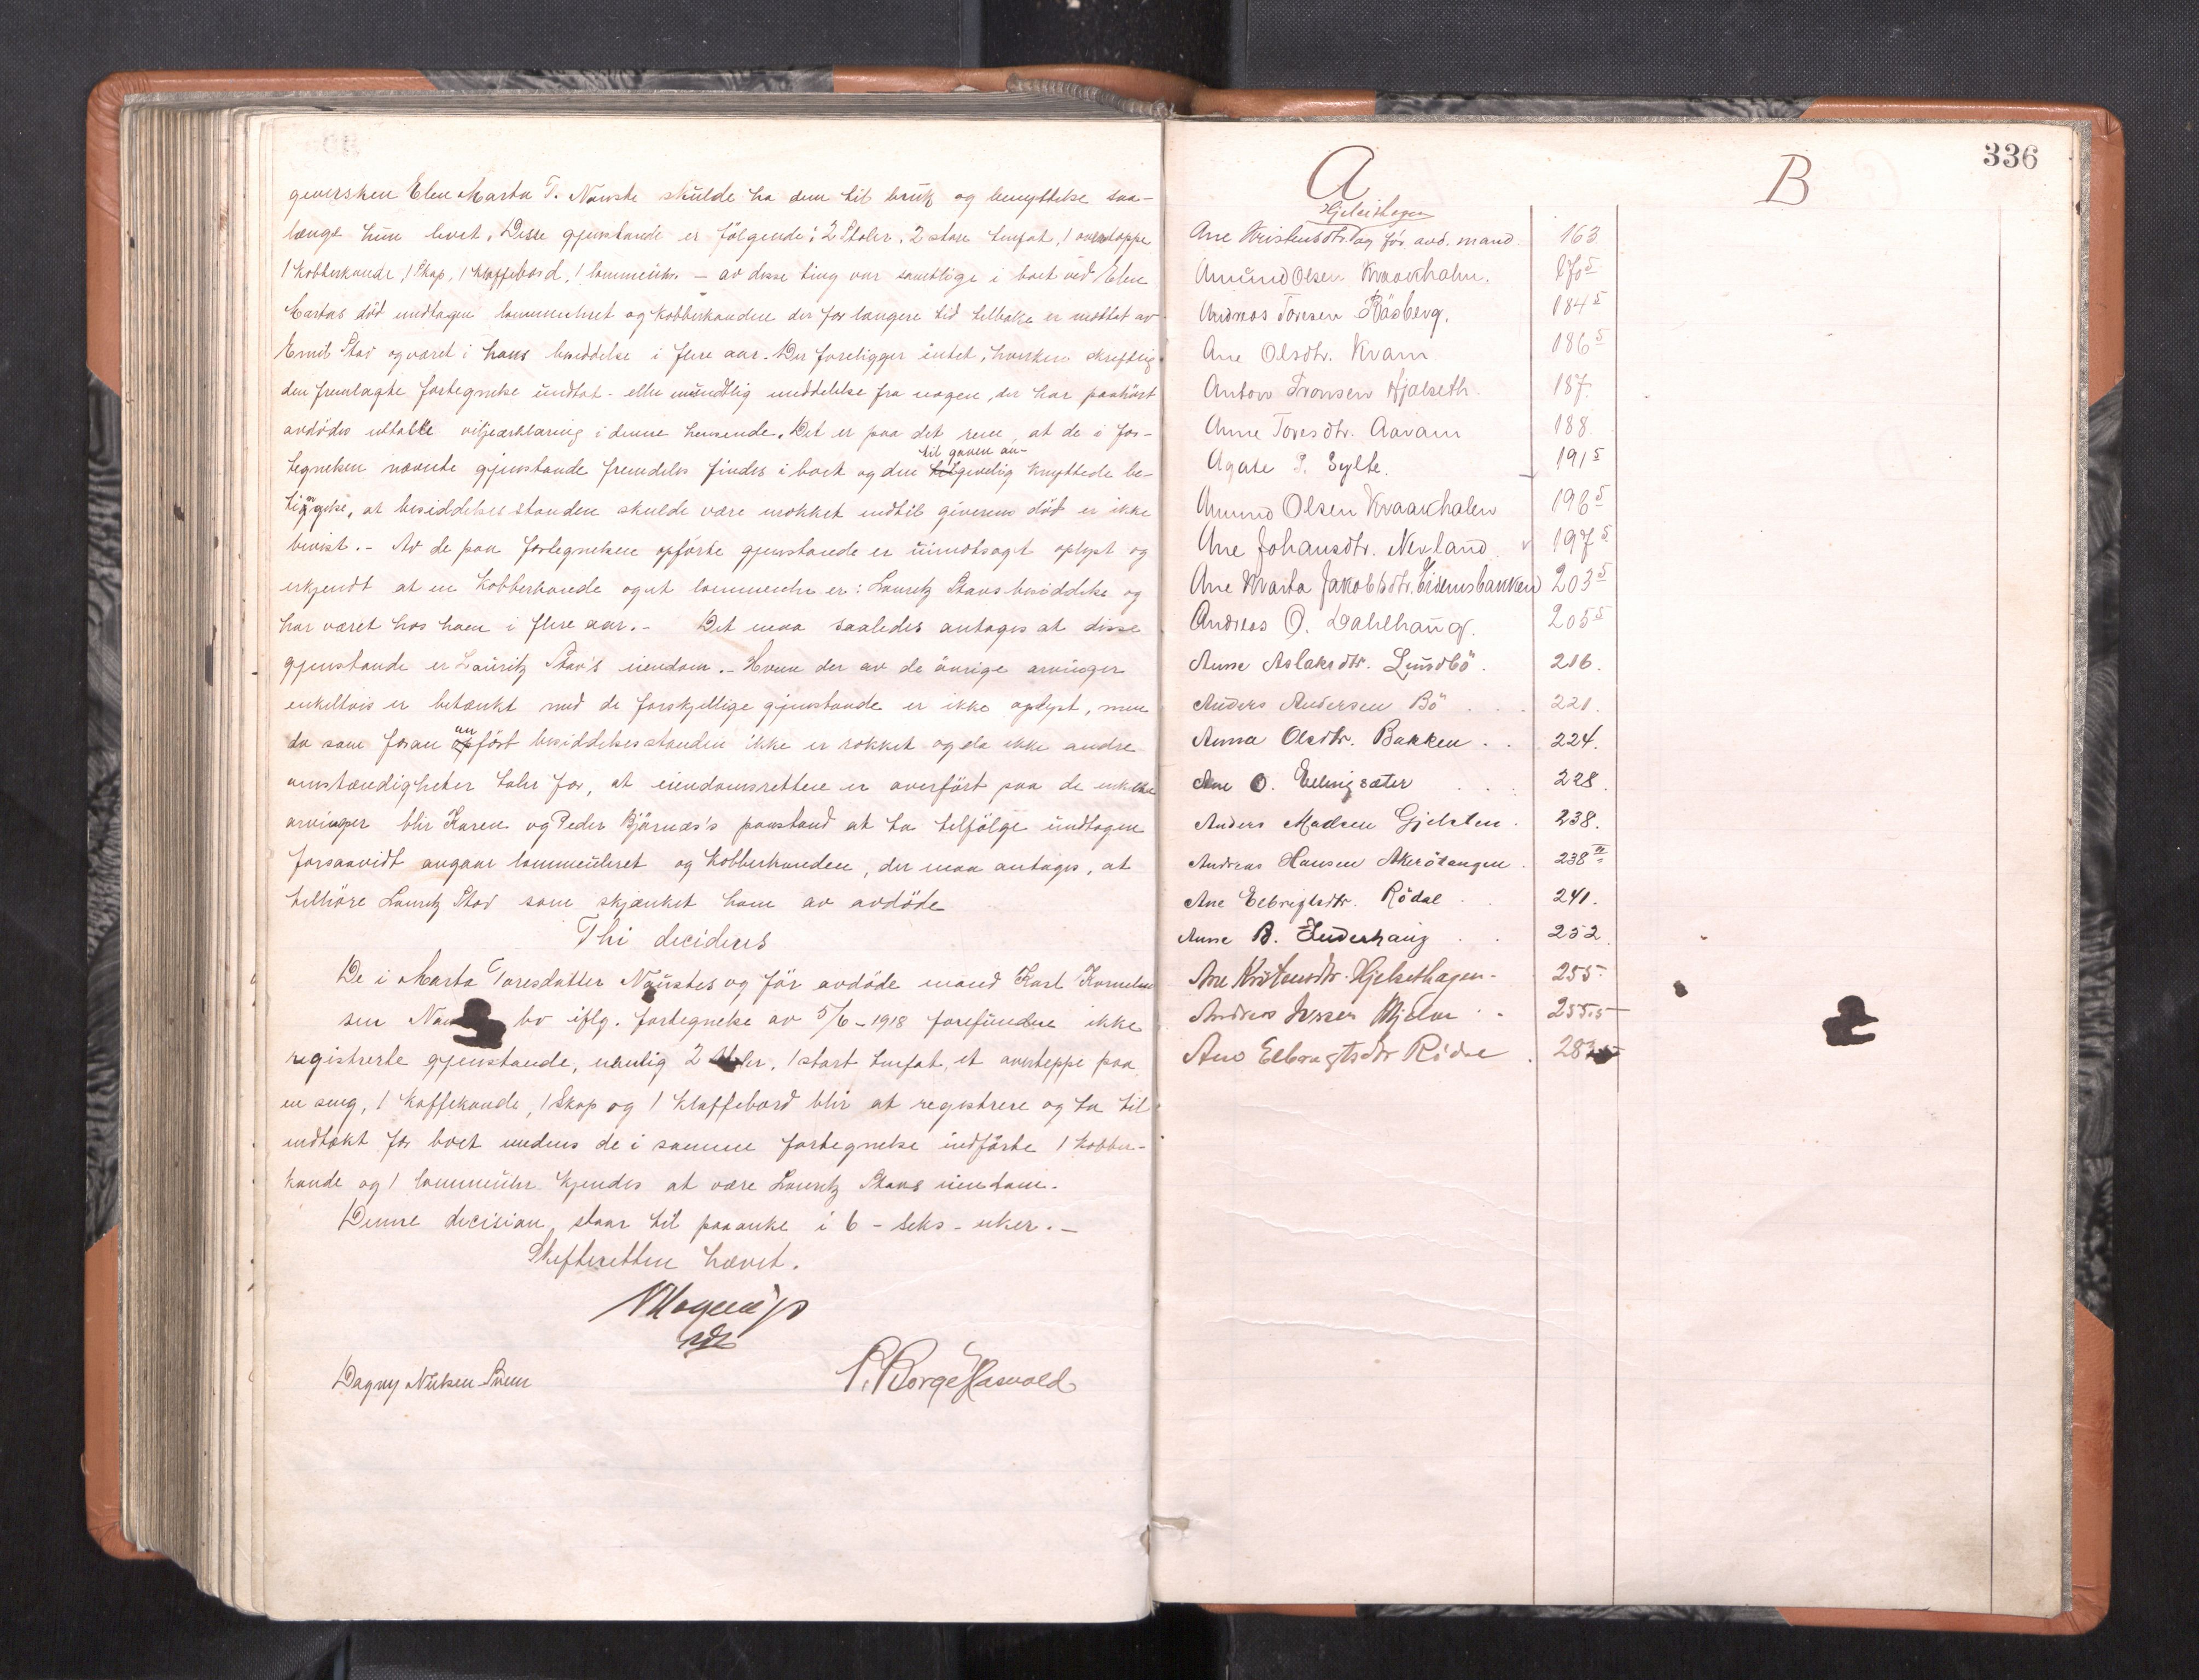 giversken Elen Marta T. Nauste skulde ha dem til bruk og benyttelse saa-
længe hun levet. Disse gjenstande er følgende: 2 Stoler, 2 store tinfat, 1 overteppe
1 Kobberkande, 1 Skap, 1 Klaffebord, 1 lommeuhr. - av disse ting var samtlige i boet ved Elen
Martas död undtagen lommeuhret og Kobberkanden der for længere tid tilbake er mottat av
Emil Stav og været i hans besiddelse i flere aar. Der foreligger intet, hverken skriftlig
den fremlagte fortegnelse undtat - eller mundtlig meddelelse fra nogen, der har paahört
avdödes uttalte viljeserklæring i denne henseende. Det er paa det rene, at de i for-
til gaven an-
tegnelsen nævnte gjenstande fremdeles findes i boet og den knyttede be-
tingelse, at besiddelsesstanden skulde være urokket indtil giverens död er ikke
bevist. - Av de paa fortegnelsen opförte gjenstande er uimotsagt oplyst og
erkjendt at en Kobberkande og et lommeuhr er i Lauritz Stavs besiddelse og
har været hos ham i flere aar. - Det maa saaledes antages at disse
gjenstande er Lauritz Stav's eiendom. - Hvem der av de övrige arvinger
enkeltvis er betænkt med de forskjellige gjenstande er ikke oplyst, men
da som foran anfört besiddelsesstanden ikke er rokket og da ikke andre
omstændigheter taler for, at eiendomsretten er overfört paa de enkelte
arvinger blir Karen og Peder Bjørnæs's paastand at ta tilfölge undtagen
forsaavidt angaar lommeuhret og Kobberkanden, der maa antages, at
tilhöre Lauritz Stav som skjænket ham av avdöde
Thi decideres
De i Marta Toresdatter Naustes og för avdöde mand Karl Kornelius
sen bo iflg. fortegnelse av 5/6-1918 forefundne ikke
registrerte gjenstande, nemlig 2 Stoler, 1 stort tinfat, et overteppe paa
en seng, 1 Kaffekande, 1 Skap og 1 Klaffebord blir at registrere og ta til
indtækt for boet medens de i samme fortegnelse indförte 1 Kobber-
kande og 1 lommeuhr kjendes at være Lauritz Stavs eiendom.
Denne decision staar til paaanke i 6 - seks - uker. -
Skifteretten hævet.
Dagny Nilsen
P. Borge Hasvold
336
A
B
Hjelsethagen
Ane Kristensdtr. og för avd. mand 163
Amund Olsen Kraakholm. 170 5
Andreas Toresen Råsberg. 184 5
Ane Olsdtr. Kvam 186 5
Anton Tronsen Hjelseth. 187.
Anne Toresdtr. Aavam 188.
Agate P. Sylte. 191 5
Amund Olsen Kraakholm 196 5
Ane Johansdtr. Nerland 197 5
Ane Marta Jakobsdtr. Eidemsbanken 203 5
Andreas O. Dahlhaug. 205 5
Anne Aslaksdtr. Lundbö. 216.
Anders Andersen Bö . . . 221.
Anna Olsdtr. Bakken . . 224.
Ane O. Ellingsæter . . . 228.
Anders Madsen Gjelsten . 238.
Andreas Hansen Akerötangen . 238
Ane Elbrigtsdtr. Rödal . . 241.
Anne B. Enderhaug . . 252.
Ane Kristensdtr. Hjelsethagen - 255.
Andreas Iversen Mjelve . . 255.5
Ane Elbragtsdtr Rödal .